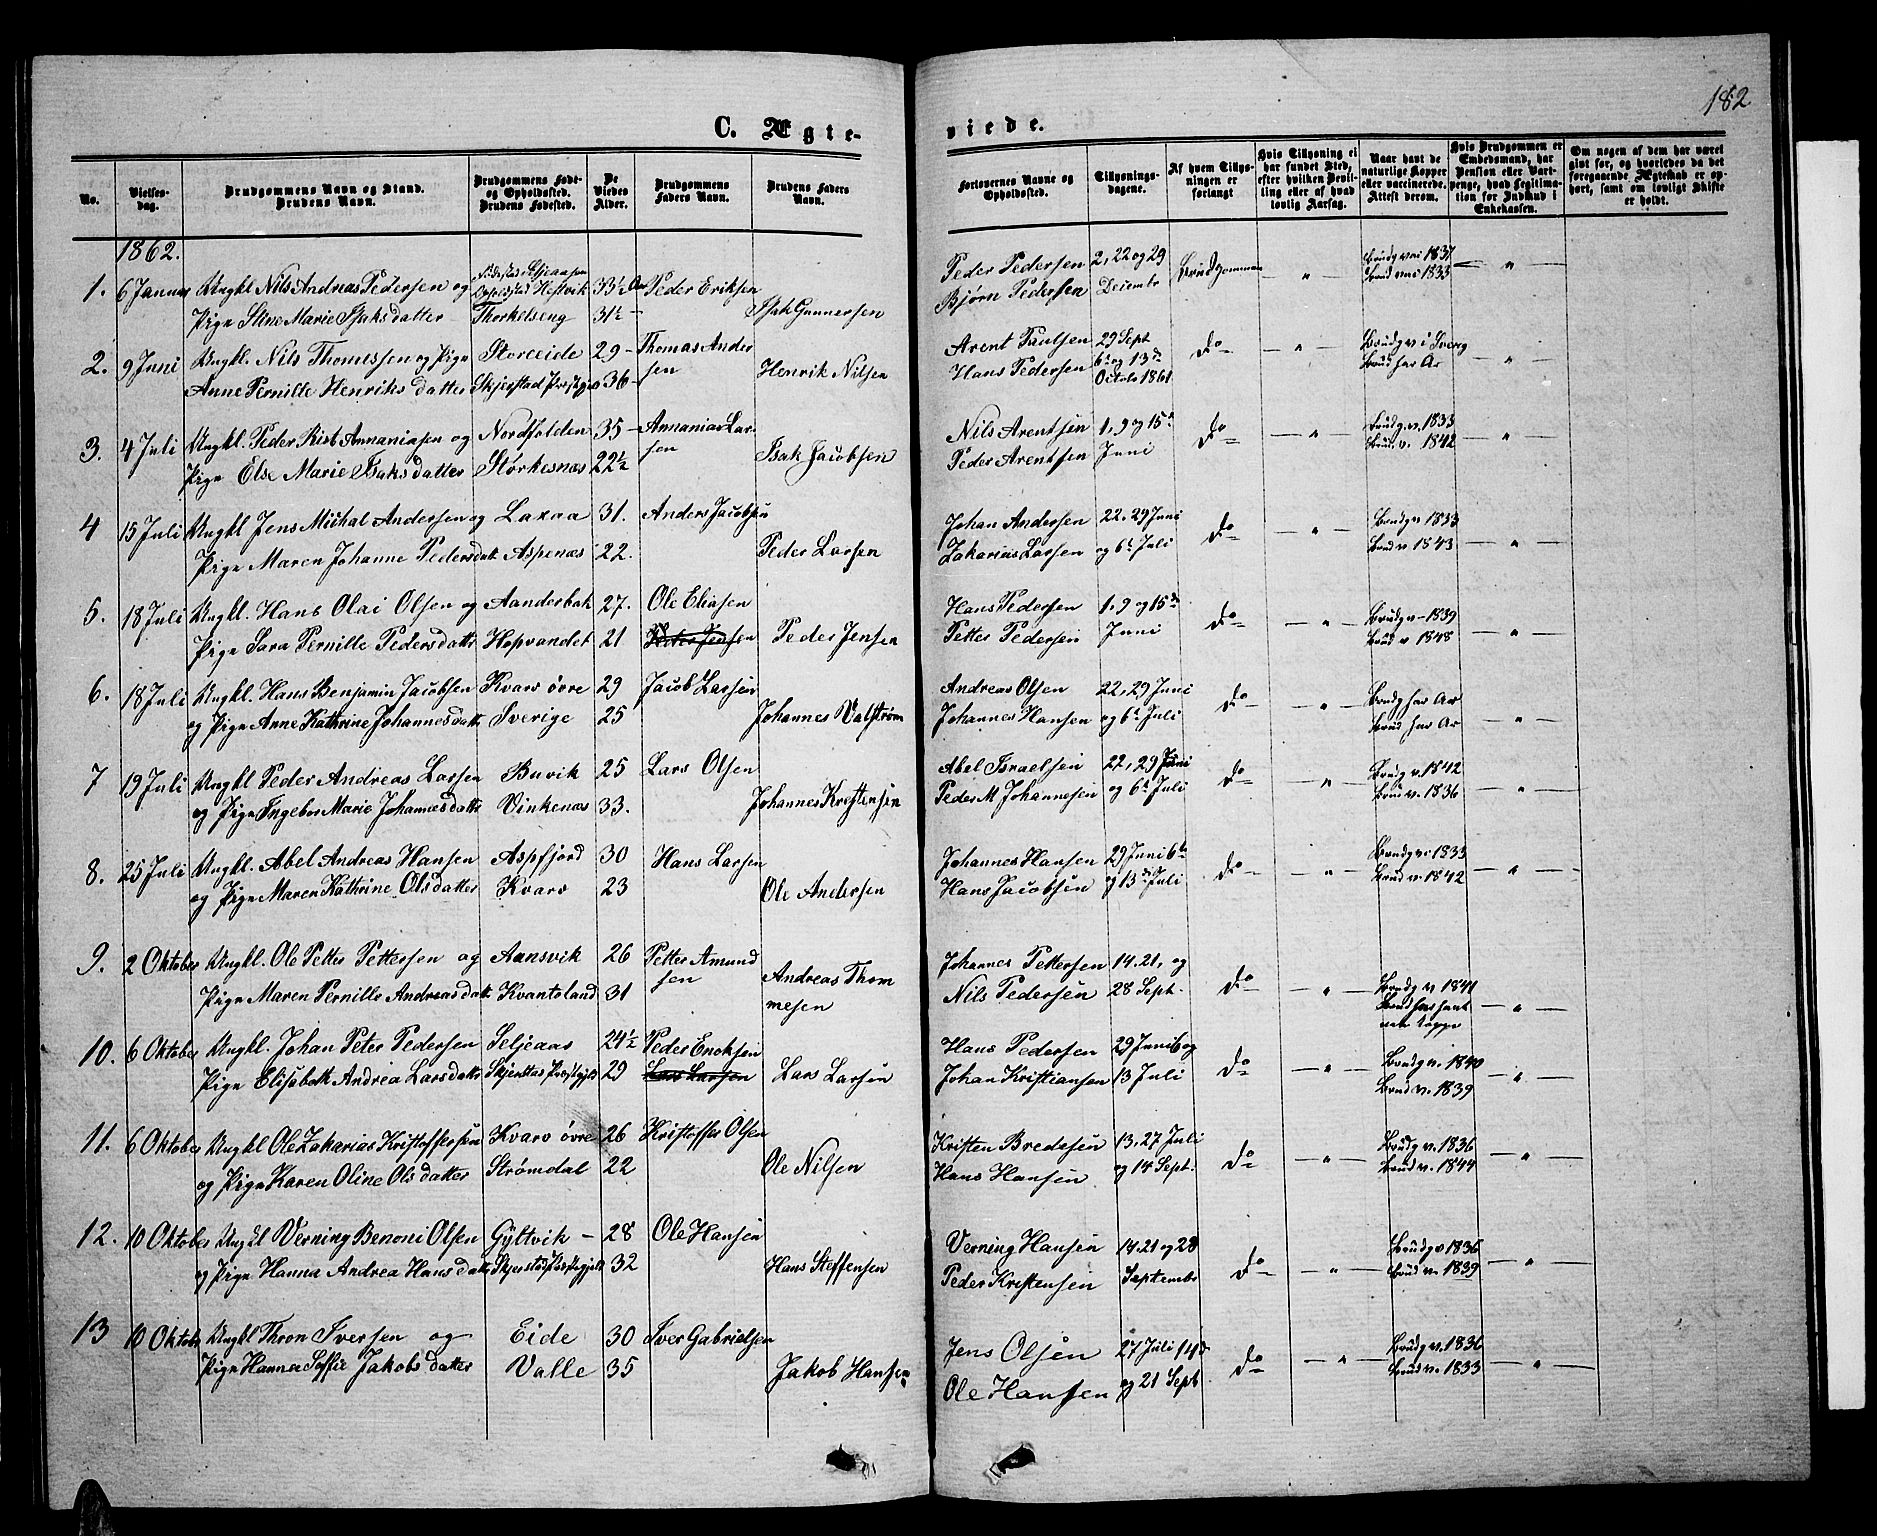 182
C. Ægte-
viede.
No.
Vielses-
dag.
Brudgommens Navn og Stand.
Brudens Navn.
Brudgommens Føde-
og Opholdssted.
Brudens Fødested.
De
Viedes
Alder.
Brudgommens
Faders Navn.
Brudens Faders
Navn.
Forlovernes Navne og
Opholdssted.
Tillysnings-
dagene.
Af hvem Tillys-
ningen er
forlangt
Hvis Tillysning ei
har fundet Sted,
efter hvilken Bevil-
ling eller af hvad
lovlig Aarsag.
Naar havt de
naturlige Kopper
eller vaccinerede.
Attest derom.
Hvis Brudgommen er
Embedsmand, har
Pension eller Vart-
penge, hvad Legitima-
tion for Indskud i
Enkekassen.
Om nogen af dem har været
gift før, og hvorledes da det
foregaaende Ægteskab er op-
hørt, samt om lovligt Skifte
er holdt.
1862.
1. 6 Januar Ungkl Nils Andreas Pedersen og Fødested Seljeaasen Opholdsted Hestvik 33½ Aar Peder Eriksen Peder Pedersen 2, 22 og 29 Brudgommen " Brudg vac 1837 "
Pige Stine Marie Isaksdatter Thorkelseng 31½ - Isak Gunnersen Bjørn Pedersen Decembr Brud vac 1833
2. 9 Juni Ungkl. Nils Thomessen og Pige Storeeide 29 - Thomas Ander Arent Paulsen 29 Sept Do " Brudg v i Sverg "
Anne Pernille Henriksdatter Skjerstad Præstegj 36 - sen Henrik Nilsen Hans Pedersen 6te og 13de Brud har Ar
Octobr 1861
3. 4 Juli Ungkl. Peder Rist Annaniasen og Nordfolden 35 - Annanias Lar- Nils Arentsen 1, 9 og 15de Do " Brudg v. 1833 "
Pige Else Marie Isaksdatter Størkesnæs 22½ sen Isak Jacobsen Peder Arentsen Juni Brud v. 1842
4 15 Juli Ungkl Jens Michal Andersen og Laxaa 31. Anders Jacobsen Johan Andersen 22, 29 Juni Do " Brudg v 1833
Pige Maren Johanne Pedersdatt Aspenæs 22. Peder Larsen Zakarias Larsen og 6te Juli Brud v 1843 "
5. 18 Juli Ungkl. Hans Olai Olsen og Aanderbak 27. Ole Eliasen Hans Pedersen 1, 9 og 15de Do " Brudg v - 1839
Pige Sara Pernille Pedersdatt Hopvandet 21 Peder Jensen Peder Jensen Petter Pedersen Juni Brud v 1848 "
6. 18 Juli Ungkl. Hans Benjamin Jacobsen Kvarv øvre 29 Jacob Larsen Andreas Olsen 22, 29 Juni Do " Brudg har Ar
og Pige Anne Kathrine Johannesdatt Sverige 25 Johannes Valstrøm Johannes Hansen og 6te Juli Brud har Ar "
7 19 Juli Ungkl Peder Andreas Larsen Buvik 25 Lars Olsen Abel Israelsen 22, 29 Juni Do " Brudg v. 1842
og Pige Ingebor Marie Johannesdatt Vinkenæs 33. Johannes Kristensen Peder M Johannesen og 6te Juli Brud v. 1836 "
8. 25 Juli Ungkl. Abel Andreas Hansen Aspfjord 30 Hans Larsen Johannes Hansen 29 Juni 6te Do " Brudg v. 1833 "
og Pige Maren Kathrine Olsdatter Kvarv 23 Ole Andersen Hans Jacobsen og 13de Juli Brud v. 1842
9. 2 Oktober Ungkl. Ole Petter Pettersen og Aansvik 26 Petter Amund Johannes Pettersen 14, 21, og Do "
Pige Maren Pernille Andreasdatt Kvantoland 31 sen Andreas Thom Nils Pedersen 28 Sept. Brudg v. 1841 "
mesen Brud har havt
nat Koppe
10. 6 Oktober Ungkl. Johan Peter Pedersen Seljeaas 24½ Peder Enoksen Hans Pedersen 29 Juni 6 og Do " Brudg v. 1840 "
Pige Elisabeth Andrea Larsdatt Skjerstad Præstgjeld 29 Lars Larsen Lars Larsen Johan Kristiansen 13 Juli Brud v. 1839
11. 6 Oktober Ungkl Ole Zakarias Kristoffersen Kvarv øvre 26 Kristoffer Olsen Kristen Bredesen 13, 27 Juli Do " Brudg v. 1836 "
og Pige Karen Oline Olsdatter Strømdal 22 Ole Nilsen Hans Hansen og 14 Sept. Brud v. 1844
12. 10 Oktober Ungkl Verning Benoni Olsen Gyltvik - 28 Ole Hansen Verning Hansen 14. 21 og 28 Do " Brudg v 1836 "
og Pige Hanna Andrea Hansdatt Skjerstad Præstgjeld 32 Hans Steffensen Peder Kristensen Septembr Brud v. 1839
13 10 Oktobr Ungkl Thron Iversen og Eide 30 Iver Gabrielsen Jens Olsen 27 Juli 14de Do " Brudg v. 1836 "
Pige Hanna Soffie Jakobsdatter Valle 35 Jakob Hansen Ole Hansen og 21 Sept Brud v. 1833